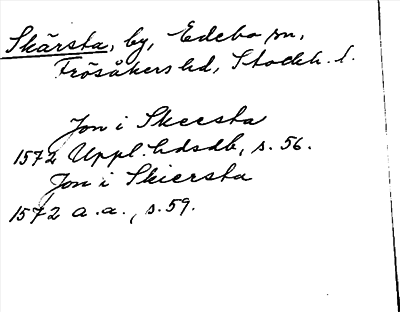 Skärsta, by, Edebo sn,
Frösåkers hd, Stockh. l.
Jon i Skeersta
1572 Uppl. hdsdb, s. 56.
Jon i Skiersta
1572 a.a., s. 59.